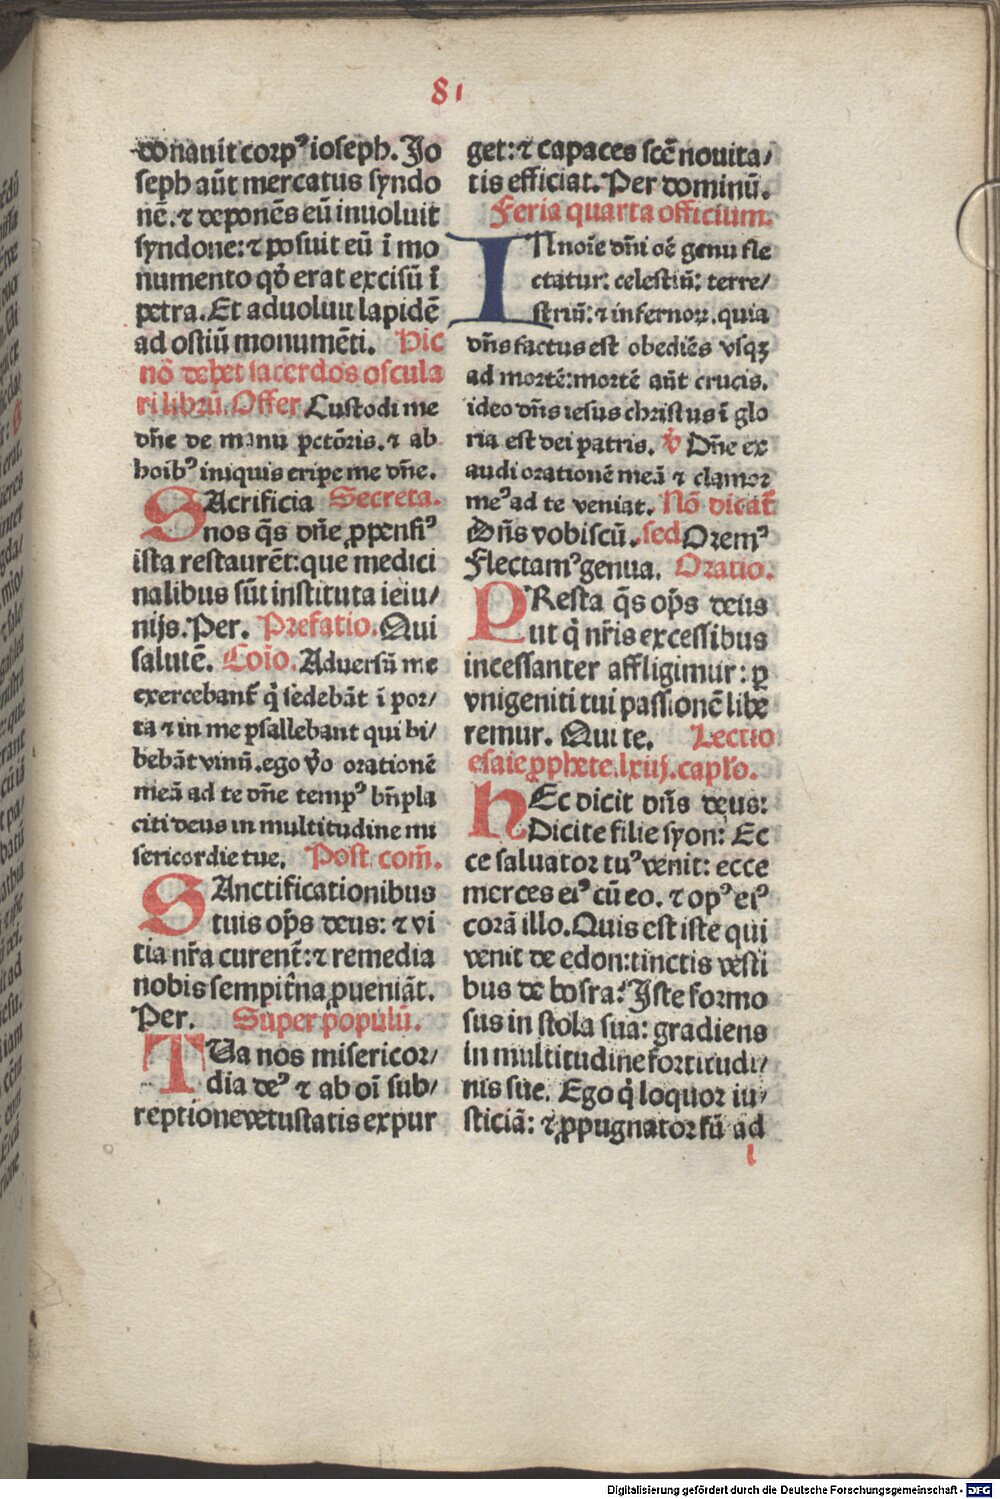 81
donauit corpꝰ ioseph. Jo
seph aūt mercatus syndo
nē. ⁊ deponēs eū inuoluit
syndone: ⁊ posuit eū ī mo
numento qḋ erat excisū ī
petra. Et aduoluit lapidē
ad ostiū monumēti. Hic
nō debet sacerdos oscula
ri librū. Offer Custodi me
dn̄e de manu pctōris. ⁊ ab
hoībꝰ iniquis eripe me dn̄e.
SAcrificia Secreta.
nos q̄s dn̄e ꝓpensiꝰ
ista restaurēt: que medici
nalibus sūt instituta ieiu/
nijs. Per. Prefatio. Qui
salutē. Coīo. Aduersū me
exercebant̄ q̄ sedebāt ī por/
ta ⁊ in me psallebant qui bi/
bebāt vinū. ego v̄o orationē
meā ad te dn̄e tempꝰ bn̄pla
citi deus in multitudine mi
sericordie tue. Post com̄.
SAnctificationibus
tuis op̄s deus: ⁊ vi
tia nr̄a curent̄: ⁊ remedia
nobis sempit̄na ꝓueniāt.
Per. Super populū.
TUa nos misericor/
dia deꝰ ⁊ ab oī sub/
reptione vetustatis expur
get: ⁊ capaces scē nouita/
tis efficiat. Per dominū.
Feria quarta officium.
IN noīe dn̄i oē genu fle
ctatur: celestiū: terre/
striū: ⁊ infernoꝝ. quia
dn̄s factus est obediēs vsqꝫ
ad mortē: mortē aūt crucis.
ideo dn̄s iesus christus ī glo
ria est dei patris. ℣ Dn̄e ex
audi orationē meā ⁊ clamor
meꝰ ad te veniat. Nō dicat̄
Dn̄s vobiscū. sed Oremꝰ
Flectamꝰ genua. Oratio.
PResta q̄s op̄s deus
ut q̄ nr̄is excessibus
incessanter affligimur: ꝑ
vnigeniti tui passionē libe
remur. Qui te. Lectio
esaie ꝓphete. lxiij. caplo.
HEc dicit dn̄s deus:
Dicite filie syon: Ec
ce saluator tuꝰ venit: ecce
merces eiꝰ cū eo. ⁊ opꝰ eiꝰ
corā illo. Quis est iste qui
venit de edon: tinctis vesti
bus de bosra? Iste formo
sus in stola sua: gradiens
in multitudine fortitudi/
nis sue. Ego q̄ loquor iu/
sticiā: ⁊ ꝓpugnator sū ad
l
Digitalisierung gefördert durch die Deutsche Forschungsgemeinschaft - DFG